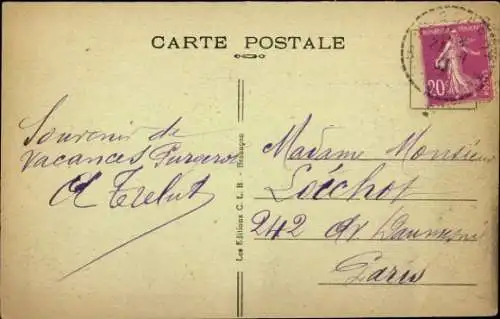 CARTE POSTALE
Souvenir de
Vacances Purgerot
A Trebut
Les Editions C. L. B. - Besançon
20c
Madame Monsieur
Loichot
242 Av Daumesnil
Paris